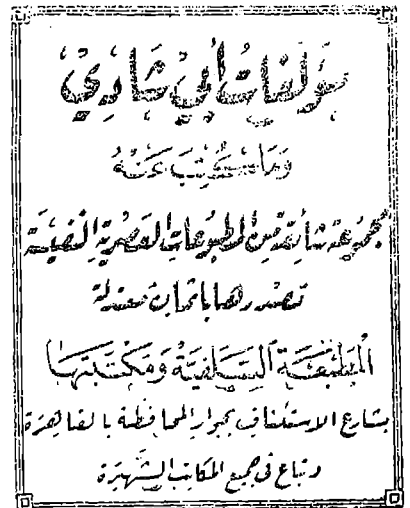 مؤلفات أبي شادي
وما كتب عنه
مجموعة شائقة من المطبوعات العصرية النفيسة
تصدرها باثمان معتدلة
المطبعة السلفية ومكتبتها
بشارع الاستئناف بجوار المحافظة بالقاهرة
وتباع في جميع المكاتب الشهيرة